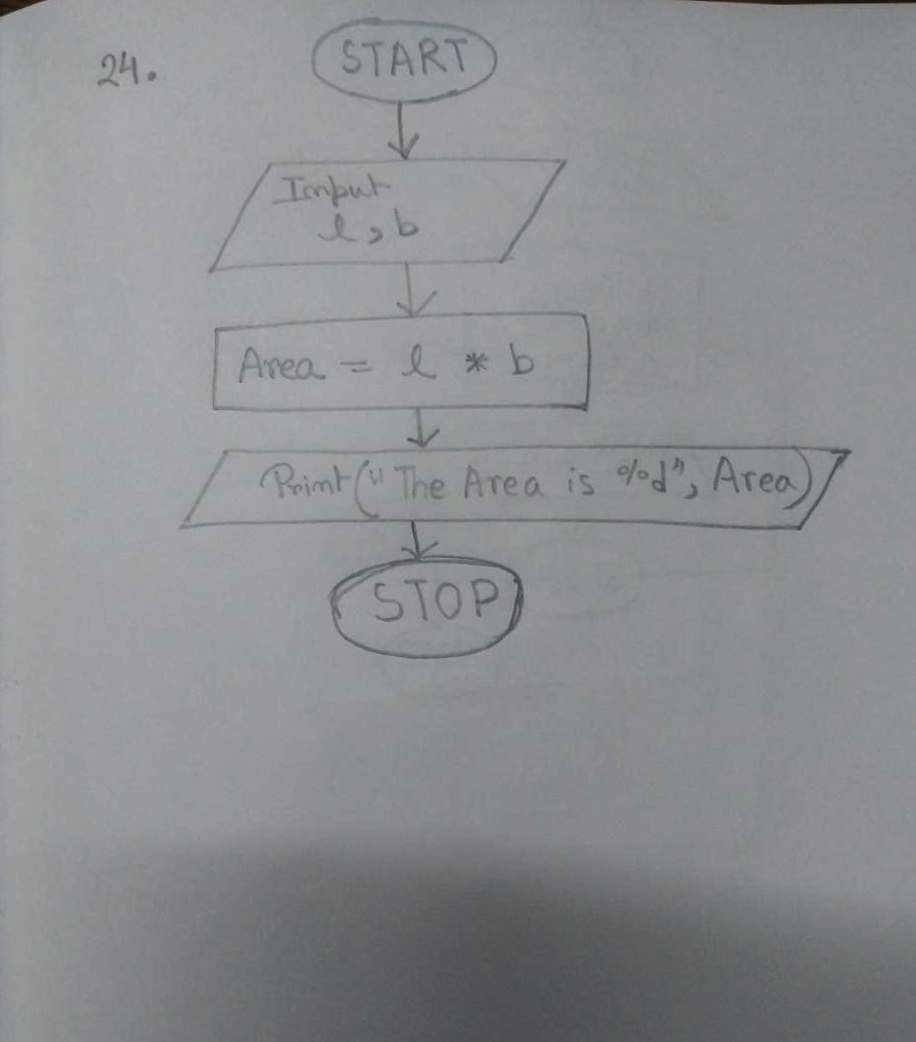 24.
START
Input
l, b
Area = l * b
Print("The Area is %d", Area)
STOP